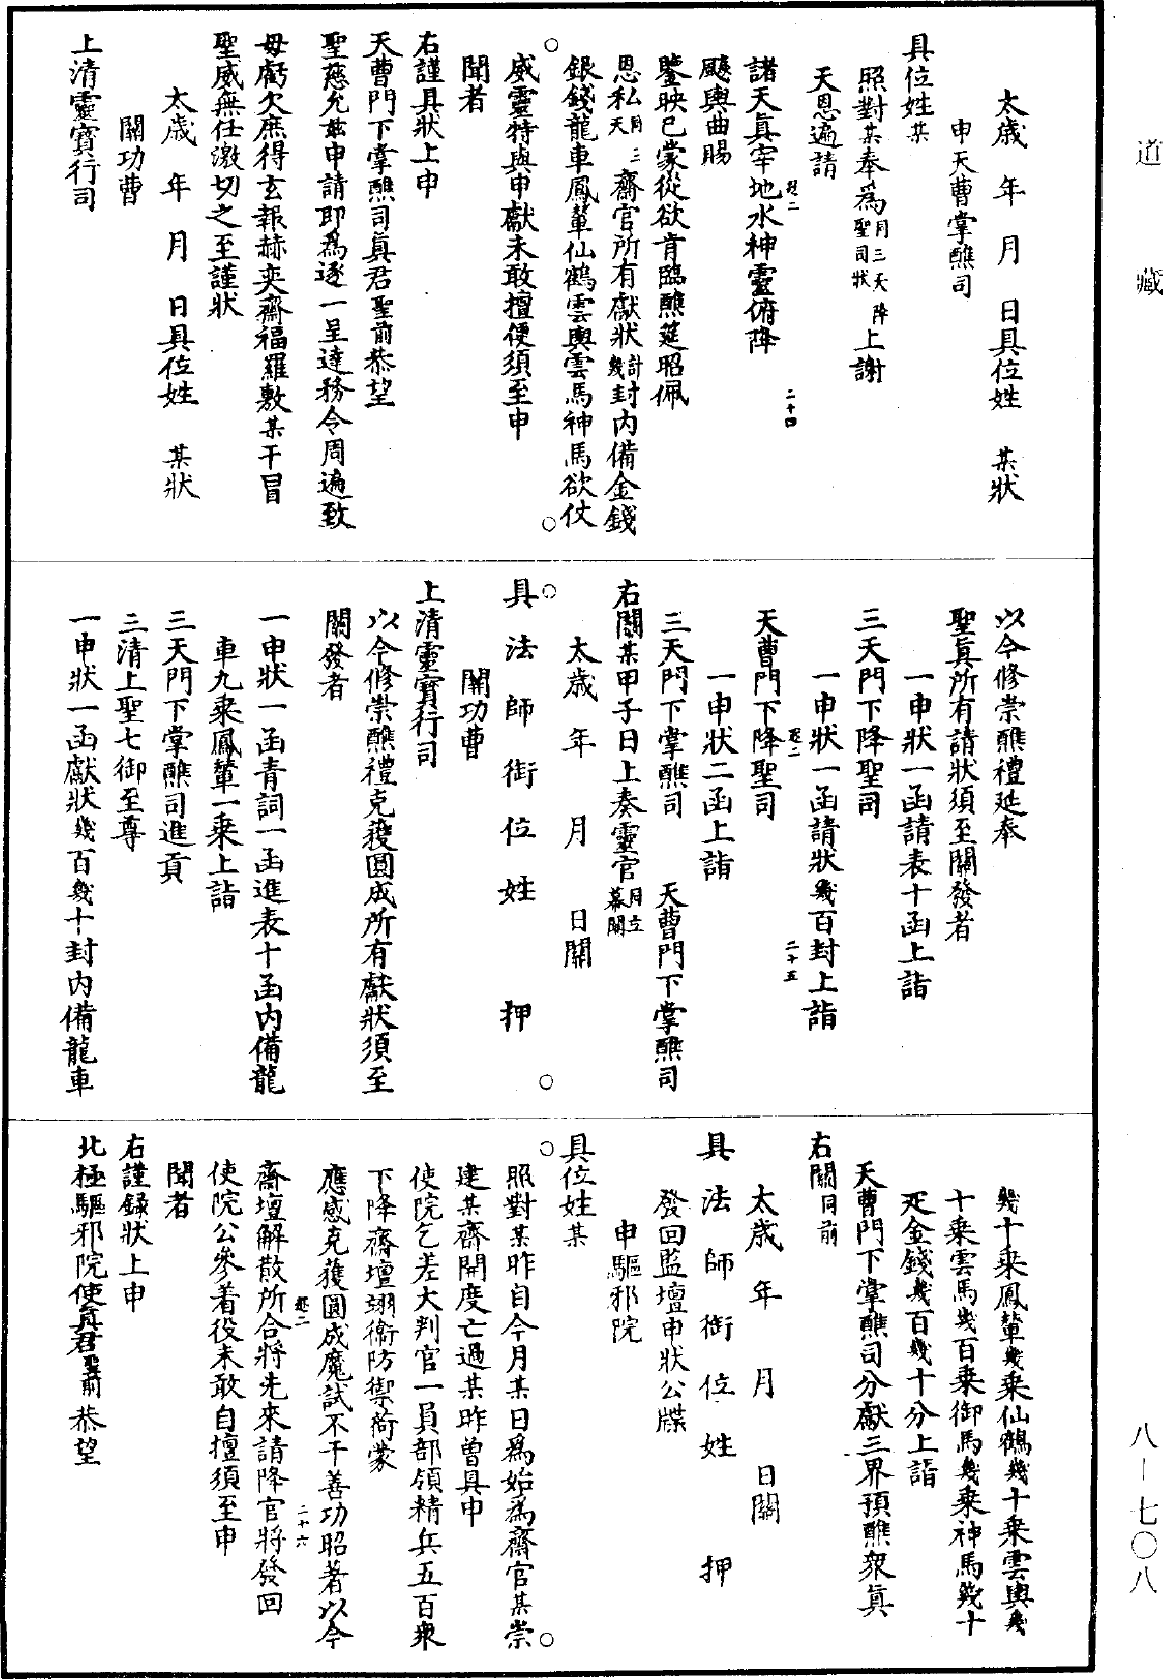 道藏
太歲　年　月　日具位姓　某狀
申天曹掌醮司
具位姓某
照對某奉爲月三天降聖司狀上謝
天恩遍請
諸天眞宰地水神靈俯降
二十四
飈輿曲賜
鑒映已蒙從欲肯臨醮筵昭佩
恩私月三天齋官所有獻狀計幾封內備金錢
銀錢龍車鳳輦仙鶴雲輿雲馬神馬欲仗
威靈特與申獻未敢擅便須至申
聞者
右謹具狀上申
天曹門下掌醮司眞君聖前恭望
聖慈允兹申請即爲逐一呈達務令周遍致
毋虧欠庶得玄報赫奕齋福羅敷某干冒
聖威無任激切之至謹狀
太歲　年　月　日具位姓　某狀
關功曹
上清靈寶行司
以今修崇醮禮延奉
聖眞所有請狀須至關發者
一申狀一函請表十函上詣
三天門下降聖司
一申狀一函請狀幾百封上詣
二十五
天曹門下降聖司
一申狀二函上詣
三天門下掌醮司　天曹門下掌醮司
右關某甲子日上奏靈官月立幕關
太歲　年　月　日關
具法師銜位姓　押
關功曹
上清靈寶行司
以今修崇醮禮克獲圓成所有獻狀須至
關發者
一申狀一函青詞一函進表十函內備龍
車九乘鳳輦一乘上詣
三天門下掌醮司進貢
三清上聖七御至尊
一申狀一函獻狀幾百幾十封內備龍車
幾十乘鳳輦幾乘仙鶴幾十乘雲輿幾
十乘雲馬幾百乘御馬幾乘神馬幾十
疋金錢幾百幾十分上詣
天曹門下掌醮司分獻三界預醮衆眞
右關同前
太歲　年　月　日關
具法師銜位姓　押
發回監壇申狀公牒
申驅邪院
具位姓某
照對某昨自今月某日爲始爲齋官某崇
建某齋開度亡過某昨曾具申
使院乞差大判官一員部領精兵五百衆
下降齋壇翊衞防禦荷蒙
應感克獲圓成魔試不干善功昭著以今
二十六
齋壇解散所合將先來請降官將發回
使院公參着役未敢自擅須至申
聞者
右謹錄狀上申
北極驅邪院使眞君聖前恭望
八—七〇八